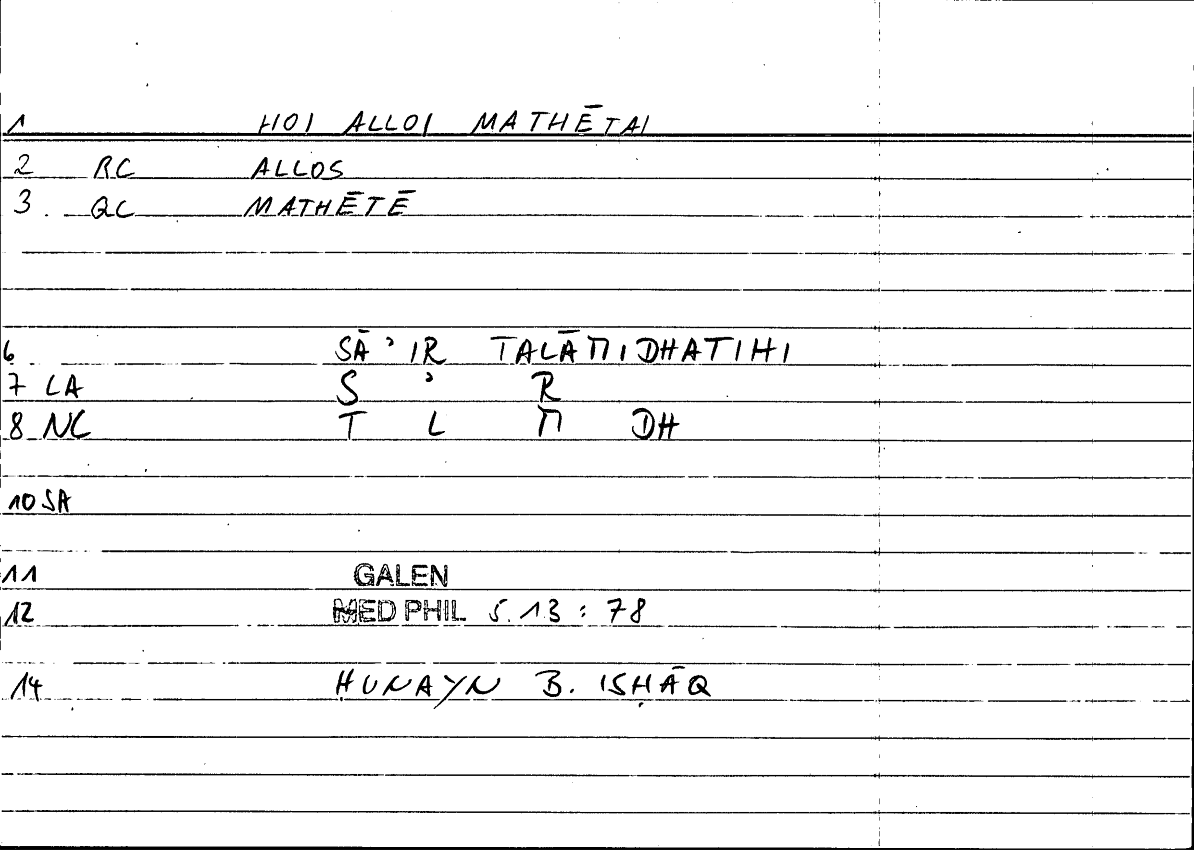 1 HOI ALLOI MATHĒTAI
2 RC ALLOS
3. QC MATHĒTĒ
6 SĀʾIR TALĀMIDHATIHI
7 LA S ʾ R
8 NC T L M DH
10 SA
11 GALEN
12 MED PHIL 5.13 : 78
14 ḤUNAYN B. ISḤĀQ